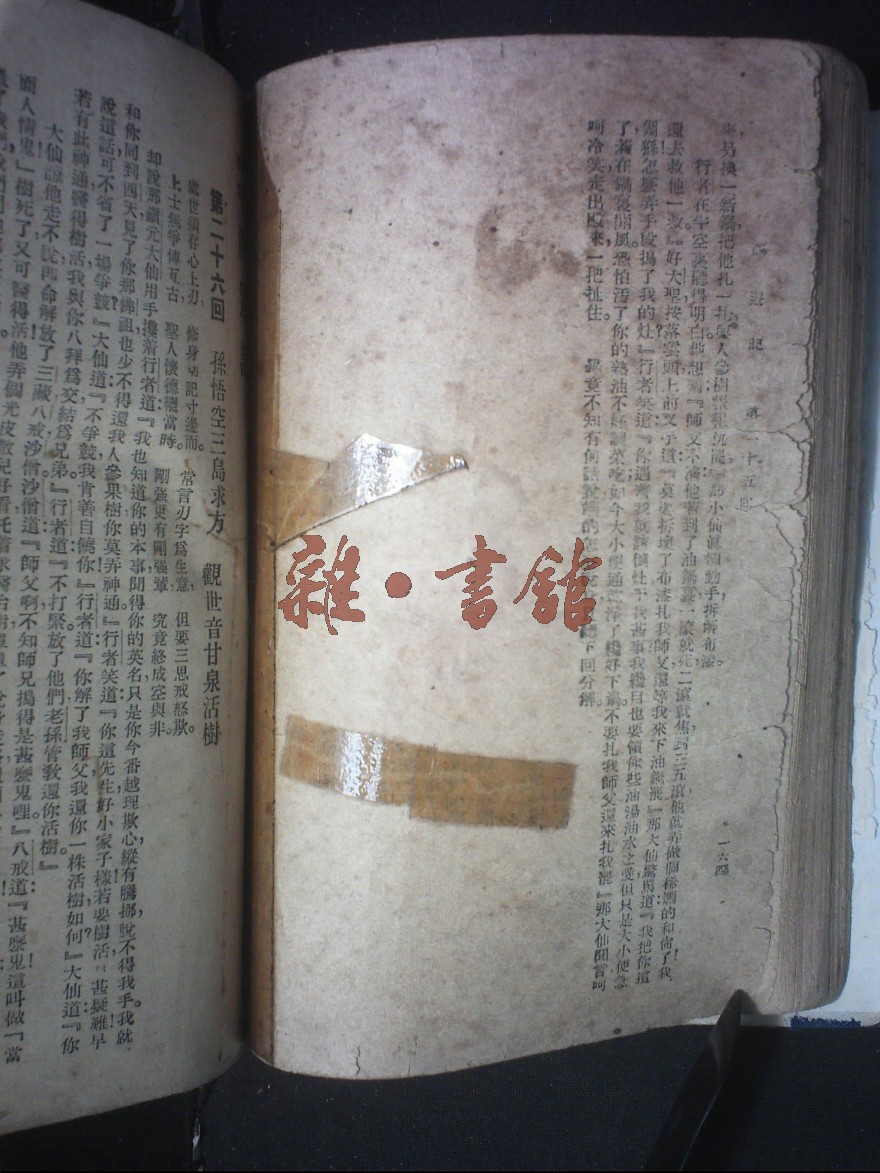 西遊記 第二十五回 一六四
來另換一新鍋把他扎一扎與人參樹報報仇罷』那小仙眞個動手拆解布漆
行者在半空裏聽得明白他想着『師父不濟他若到了油鍋裏一滾就死二滾就焦到三五滾他就弄做個稀爛的和尙了我
還去救他一救』好大聖按落雲頭上前叉手道『莫要拆壞了布漆扎我師父還等我來下油鍋罷』那大仙驚罵道『我把你這
猢猻怎麼弄手段搗了我的灶』行者笑道『你遇着我就該倒灶干我甚事我纔自也要領你些油湯油水之愛但只是大小便急
了若在鍋裏開風恐怕汚了你的熟油不好調菜吃如今大小便通乾淨了纔好下鍋不要扎我師父還來扎我罷』那大仙聞言呵
呵冷笑走出殿來一把扯住。 畢竟不知有何話說 下回分解。
雜·書館
第二十六回 孫悟空三島求方 觀世音甘泉活樹
處世須存心上刃， 修身切記寸邊而。 常言刃字爲生意， 但要三思戒怒欺。
上士無爭傳亙古， 聖人懷德繼當時。 剛強更有剛強輩， 究竟終成空與非。
却說那鎭元大仙用手攙着行者道：『我也知道你的本事聞得你的英名只是你今番越理欺心縱有騰挪脫不得我手。我就
和你同到西天見了你那佛祖也少不得還我人參果樹你莫弄神通。』行者笑道：『你這先生好小家子樣若要樹活有甚疑難早
說這話可不省了一場爭競？』大仙道：『不爭競我肯善自饒你！』行者道：『你解了我師父我還你一株活樹如何？』大仙道：『你
若有此神通醫得樹活我與你八拜爲交結爲兄弟。』行者道：『不打緊放了他們老孫管敎還你活樹！』
大仙諒他走不脫卽命解放了三藏八戒沙僧。沙僧道：『師父啊不知師兄搗得是甚麼鬼哩。』八戒道：『甚麼鬼這叫做「當
面人情鬼」！樹死了又可醫得活他弄個光皮散兒好看